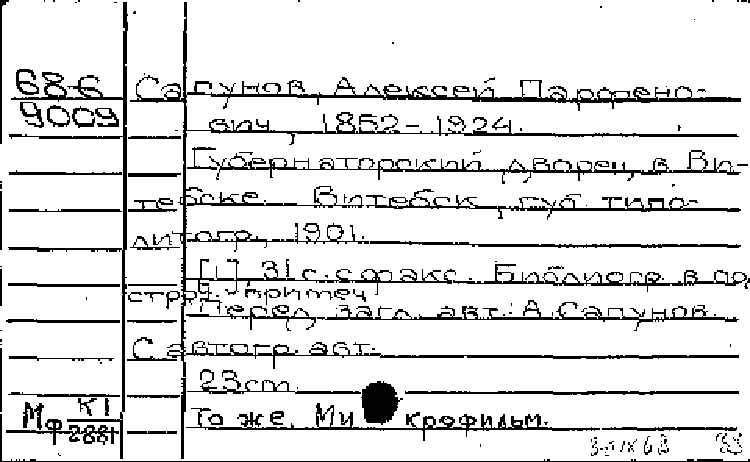 68-6 Сапунов, Алексей Парфено-
9009 вич, 1852-1924.
Губернаторский дворец в Ви-
тебске. Витебск, губ. типо-
литогр., 1901.
[1], 31 с. с факс. Библиогр. в под
строч. примеч.
Перед загл. авт.: А. Сапунов.
С автогр. авт.
23 cm.
Мф К1 То же. Микрофильм.
2881